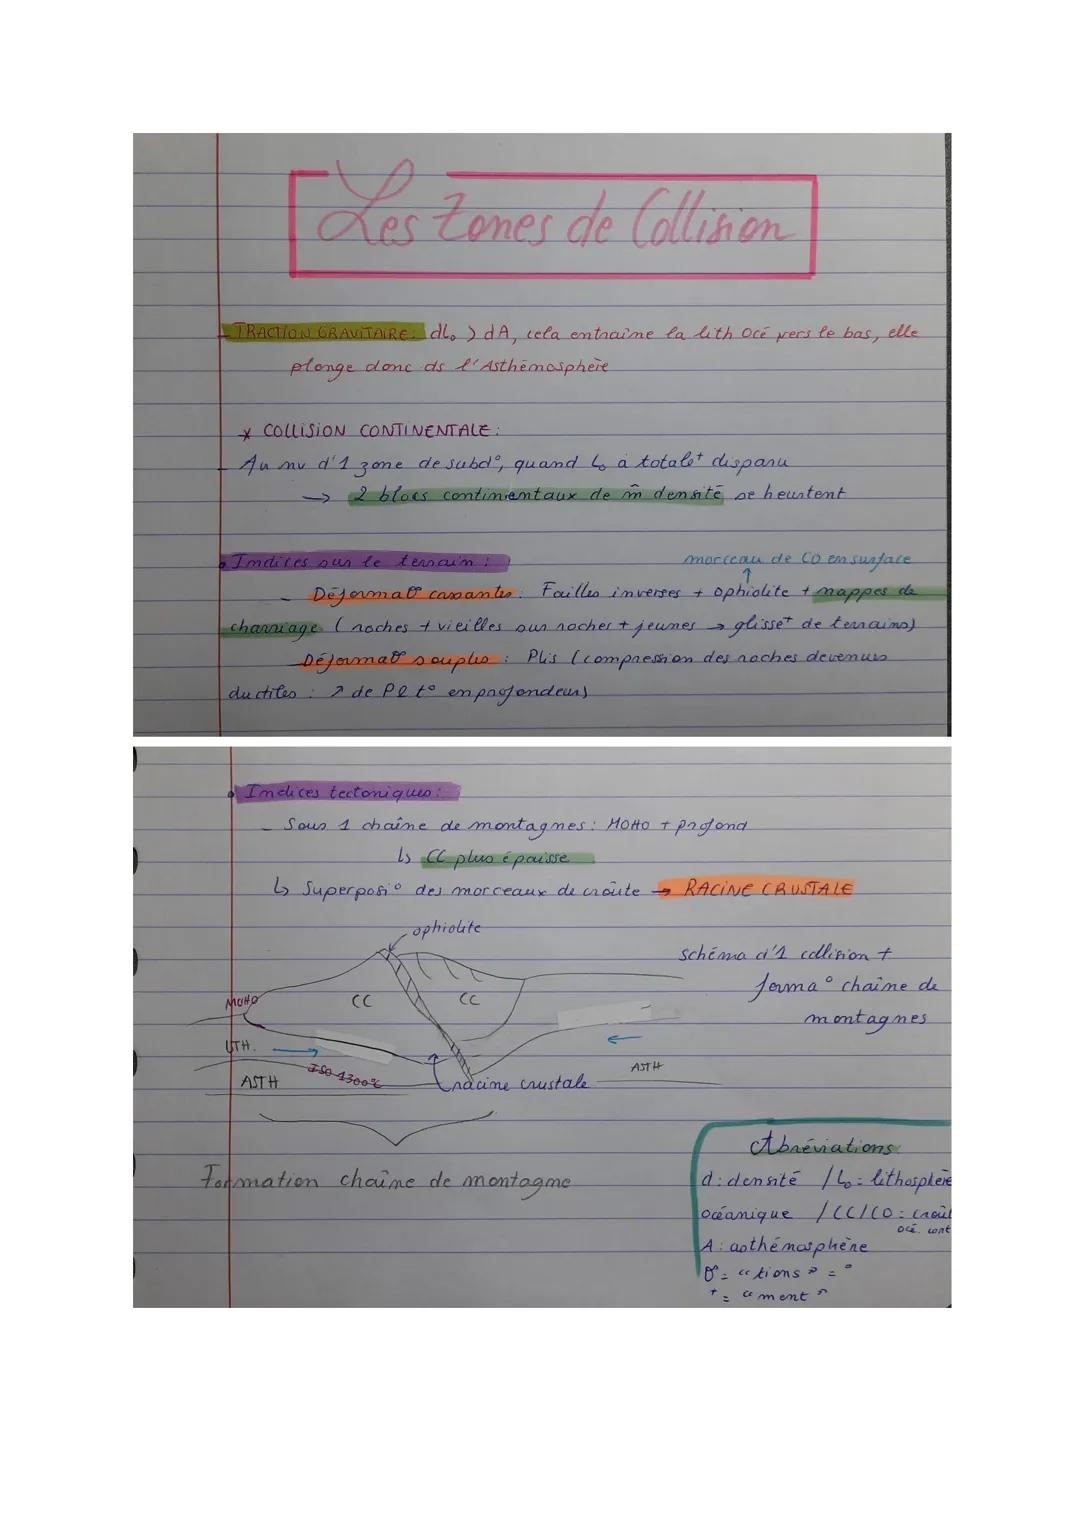 Les Zones de Collision
TRACTION GRAVITAIRE: dLo > dA, cela entraîne la lith Océ vers le bas, elle
plonge donc ds l'Asthénosphère
* COLLISION CONTINENTALE:
Au nv d'1 zone de subd°, quand Lo a totalet disparu
→ 2 blocs continentaux de m̂ densité se heurtent
• Indices sur le terrain :
morceau de CO en surface
- Déformat° cassantes : Failles inverses + ophiolite + nappes de
charriage ( roches + vieilles sur roches + jeunes → glisset de terrains)
- Déformat° souples : Plis (compression des roches devenues
ductiles : ↗ de P et t° en profondeur)
• Indices tectoniques:
- Sous 1 chaîne de montagnes: MOHO + profond
↳ CC plus épaisse
↳ Superposi° des morceaux de croûte → RACINE CRUSTALE
ophiolite
schéma d'1 collision +
forma° chaîne de
montagnes
MOHO
CC
CC
LITH.
ISO 1300°C
ASTH
racine crustale
ASTH
Formation chaîne de montagne
Abréviations
d: densité / Lo: lithosphère
océanique / CC/CO: croût
océ. cont
A: asthénosphère
"tions" = °
+ = "ment"